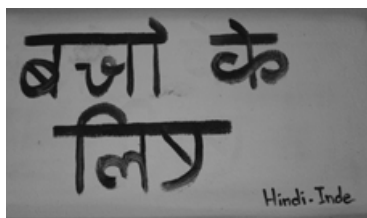 बच्चों के
लिए
Hindi-Inde